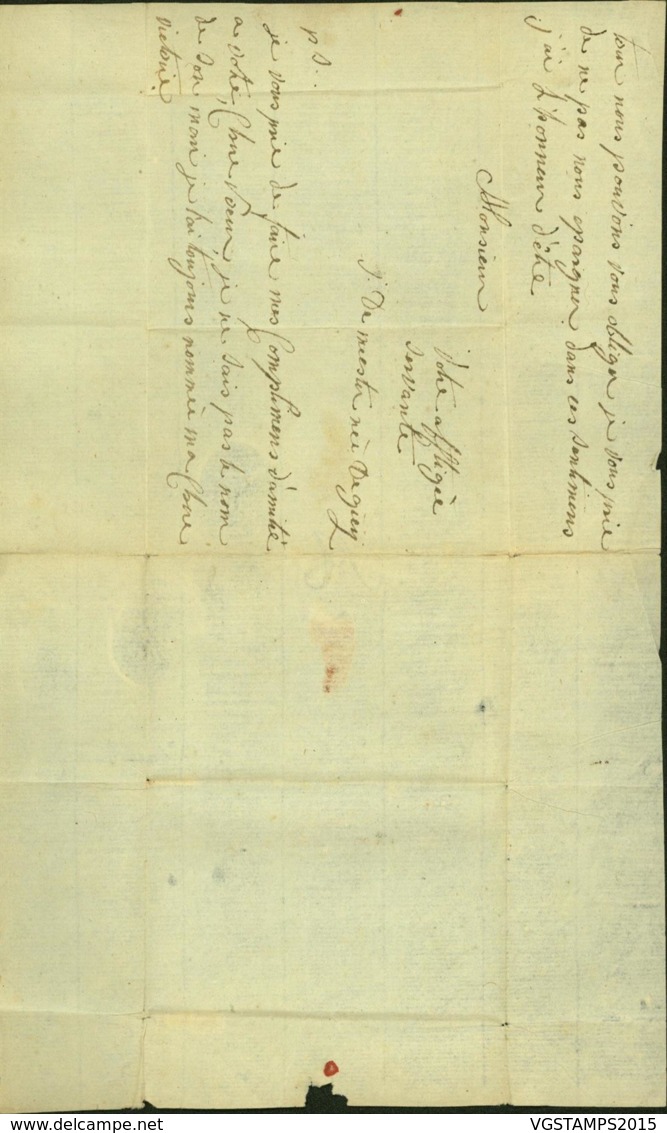 tour nous pouvons vous obliger je vous prie
de ne pas nous epargner dans ces sentimens
j'ai L'honneur d'être
Monsieur
votre affligée
servante
J De meester née Degrey
pS..
je vous prie de faire mes Complimens d'amitié
a votre Chere Soeur, je ne sais pas le nom
de son mari je l'ai toujours nommée ma Chere
victoire
www.delcampe.net
VGSTAMPS2015